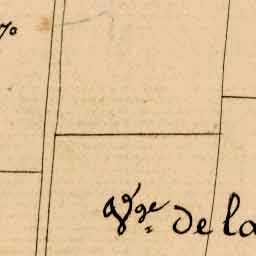 70
Vge de la